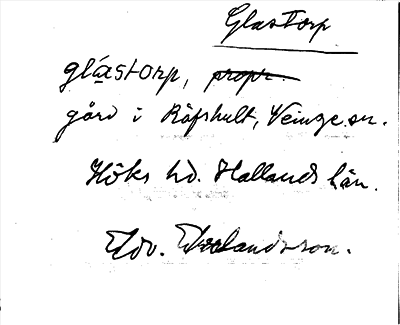 Glastorp
glástorp, propr.
gård i Råpshult, Veinge sn.
Höks hd. Hallands län.
Edv. Erlandsson.